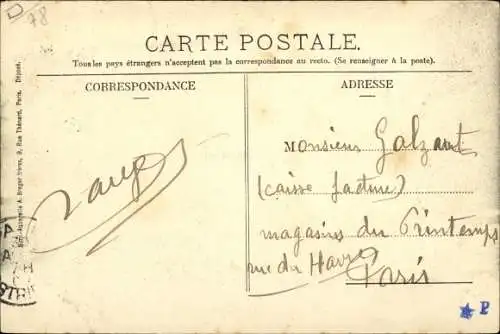 D 78
CARTE POSTALE.
Tous les pays étrangers n'acceptent pas la correspondance au recto. (Se renseigner à la poste).
CORRESPONDANCE
ADRESSE
Monsieur Galzant
(caisse facture)
magasins du Printemps
rue du Havre
Paris
A. Breger frères, 9, Rue Thénard, Paris. Déposé.
P